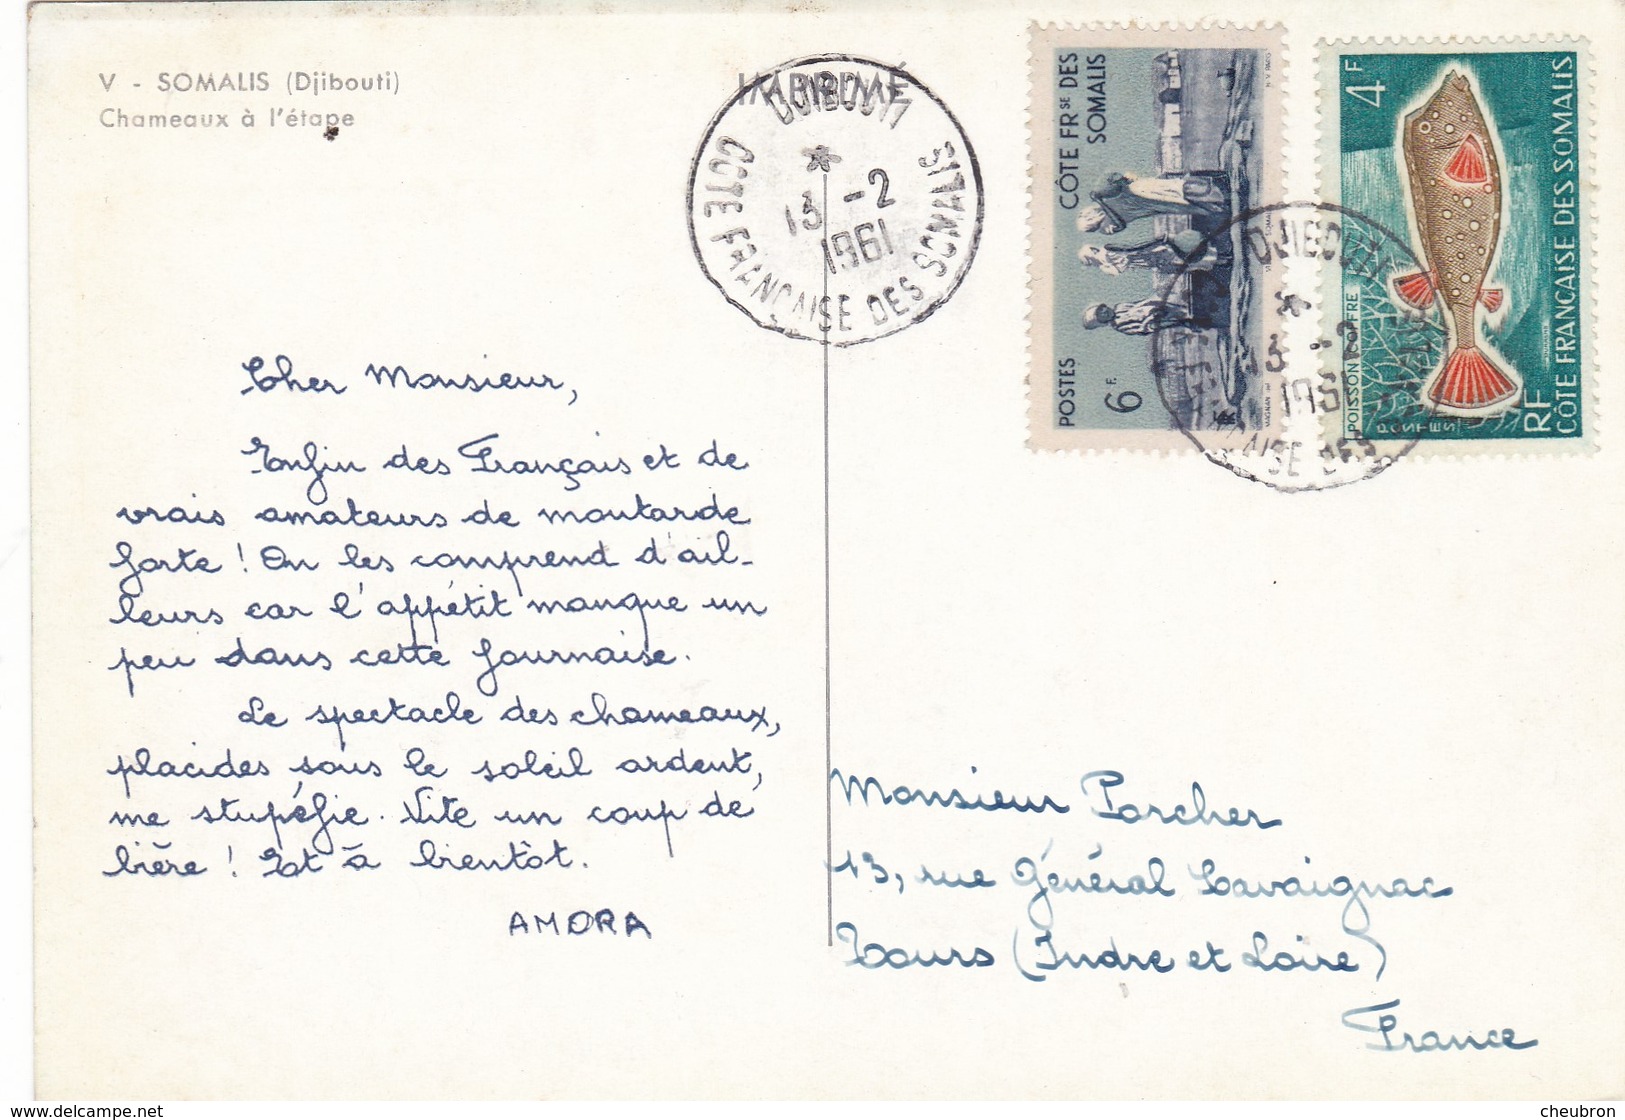 V - SOMALIS (Djibouti)
Chameaux à l'étape
IMPRIMÉ
DJIBOUTI
13 -2
1961
COTE FRANCAISE DES SOMALIS
CÔTE FRSE DES
SOMALIS
POSTES
6F.
4F
POISSON COFFRE
POSTES
RF
CÔTE FRANCAISE DES SOMALIS
DJIBOUTI
13 -2
1961
Cher Monsieur,
Enfin des Français et de
vrais amateurs de moutarde
forte ! On les comprend d'ail-
leurs car l'appétit manque un
peu dans cette fournaise.
Le spectacle des chameaux,
placides sous le soleil ardent,
me stupéfie. Vite un coup de
bière ! Et à bientôt.
AMORA
Monsieur Porcher
13, rue Général Cavaignac
Tours (Indre et Loire)
France
www.delcampe.net
cheubron